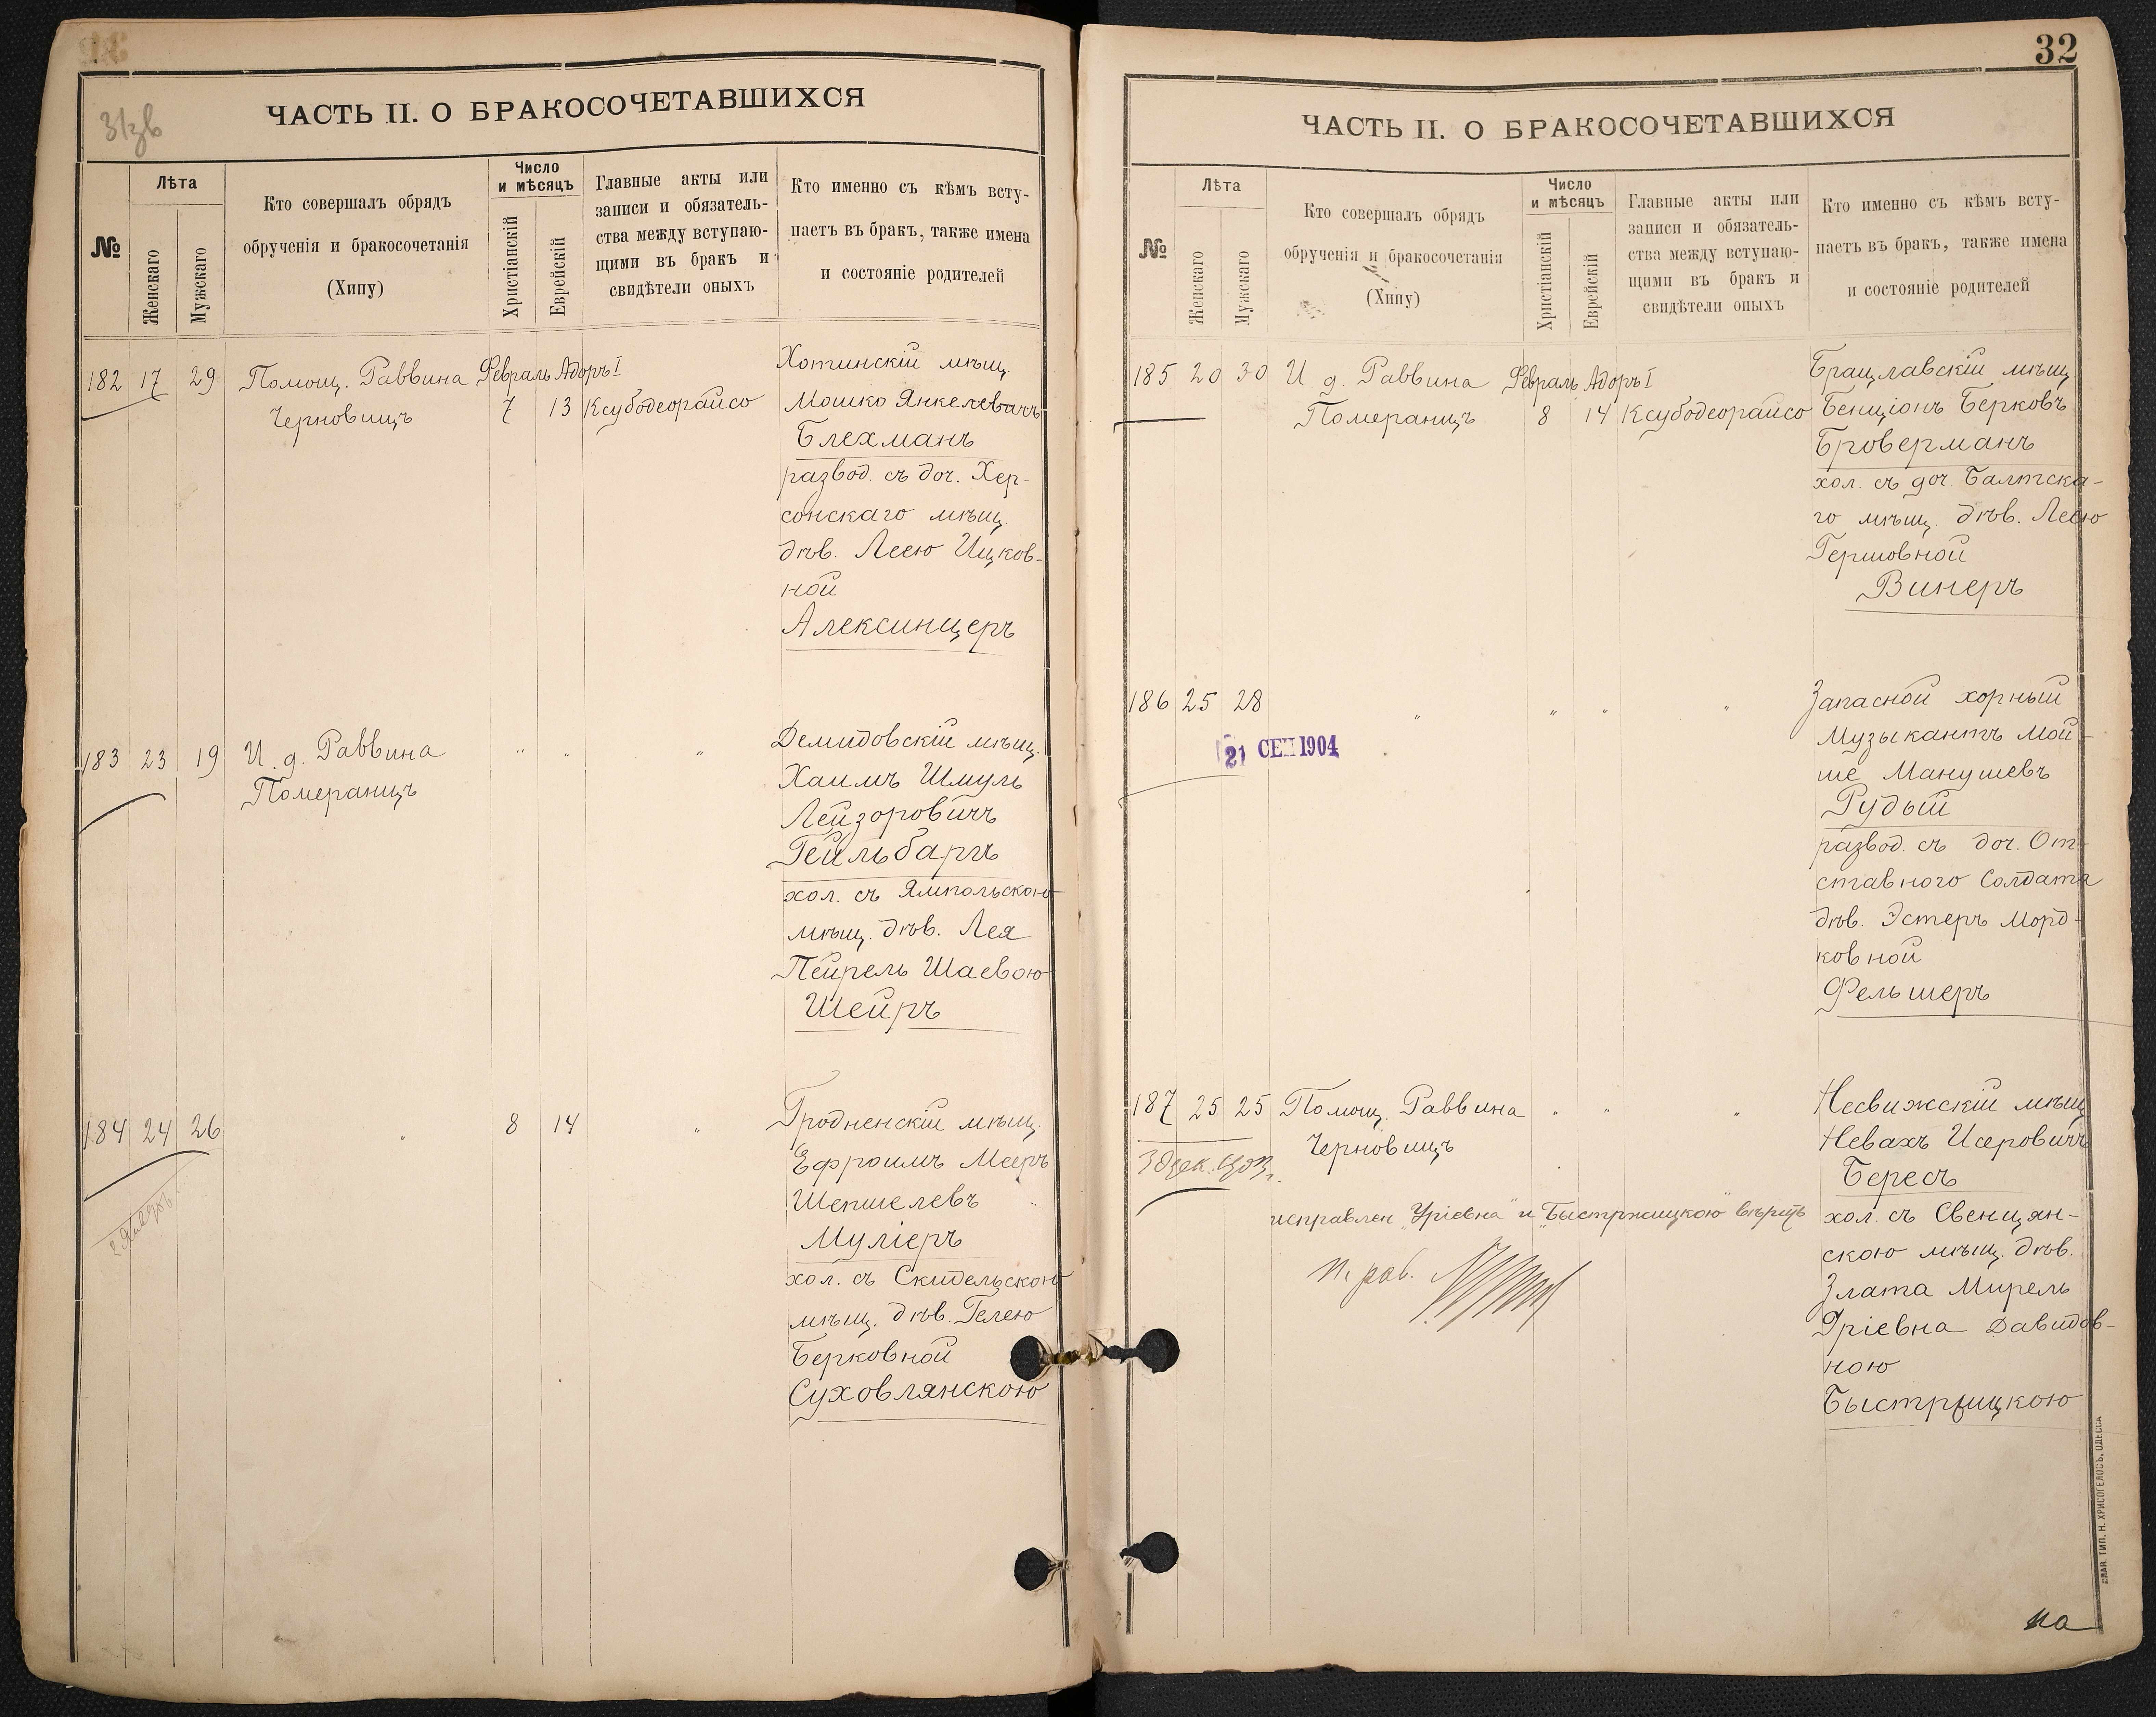 ЧАСТЬ II. О БРАКОСОЧЕТАВШИХСЯ
№
Лѣта
Женскаго
Мужскаго
Кто совершалъ обрядъ
обрученія и бракосочетанія
(Хипу)
Число
и мѣсяцъ
Христіанскій
Еврейскій
Главные акты или
записи и обязатель-
ства между вступаю-
щими въ бракъ и
свидѣтели оныхъ
Кто именно съ кѣмъ всту-
паетъ въ бракъ, также имена
и состояніе родителей
182 17 29 Помощ. Раввина Февраль Адоръ I
Черновицъ 7 13 Ксубодеорайсо
Хотинскій мѣщ.
Мошко Янкелевичъ
Блехманъ
развод. съ доч. Хер-
сонскаго мѣщ.
дѣв. Леею Ицков-
ной
Алексинцеръ
183 23 19 И. д. Раввина " " "
Померанцъ
Демидовскій мѣщ.
Хаимъ Шмуль
Лейзоровичъ
Гейльбаръ
хол. съ Ямпольскою
мѣщ. дѣв. Лея
Пейрель Шаевою
Шейръ
184 24 26 " 8 14 "
Гродненскій мѣщ.
Ефроимъ Мееръ
Шепшелевъ
Муліеръ
хол. съ Скидельскою
мѣщ. дѣв. Гелею
Берковной
Суховлянскою
32
ЧАСТЬ II. О БРАКОСОЧЕТАВШИХСЯ
№
Лѣта
Женскаго
Мужскаго
Кто совершалъ обрядъ
обрученія и бракосочетанія
(Хипу)
Число
и мѣсяцъ
Христіанскій
Еврейскій
Главные акты или
записи и обязатель-
ства между вступаю-
щими въ бракъ и
свидѣтели оныхъ
Кто именно съ кѣмъ всту-
паетъ въ бракъ, также имена
и состояніе родителей
185 20 30 И д. Раввина Февраль Адоръ I
Померанцъ 8 14 Ксубодеорайсо
Брацлавскій мѣщ
Бенціонъ Берковъ
Броверманъ
хол. съ доч. Балтска-
го мѣщ. дѣв. Леею
Гершовной
Винеръ
186 25 28 " " " "
21 СЕН 1904
Запасной хорный
Музыкантъ Мой-
ше Манушевъ
Рудый
развод. съ доч. От-
ставного Солдата
дѣв. Эстеръ Морд-
ковной
Фельшеръ
187 25 25 Помощ. Раввина " " "
Черновицъ
3 дек. 1903 г.
исправлен "Уріевна" и "Быстржицкою" вѣрить
п. рав.
Несвижскій мѣщ
Невахъ Исеровичъ
Бересъ
хол. съ Свенцян-
скою мѣщ. дѣв.
Злата Мирель
Уріевна Давидов-
ною
Быстржицкою
СЛАВ. ТИП. Н. ХРИСОГЕЛОСЪ, ОДЕССА
на